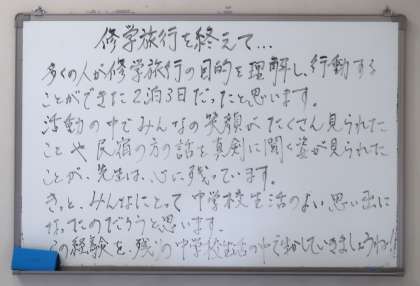 修学旅行を終えて…
多くの人が修学旅行の目的を理解し、行動する
ことができた2泊3日だったと思います。
活動の中でみんなの笑顔がたくさん見られた
ことや民宿の方の話を真剣に聞く姿が見られた
ことが、先生は、心に残っています。
きっと、みんなにとって中学校生活のよい思い出に
なったのだろうと思います。
この経験を、残りの中学校生活の中で生かしていきましょうね!!